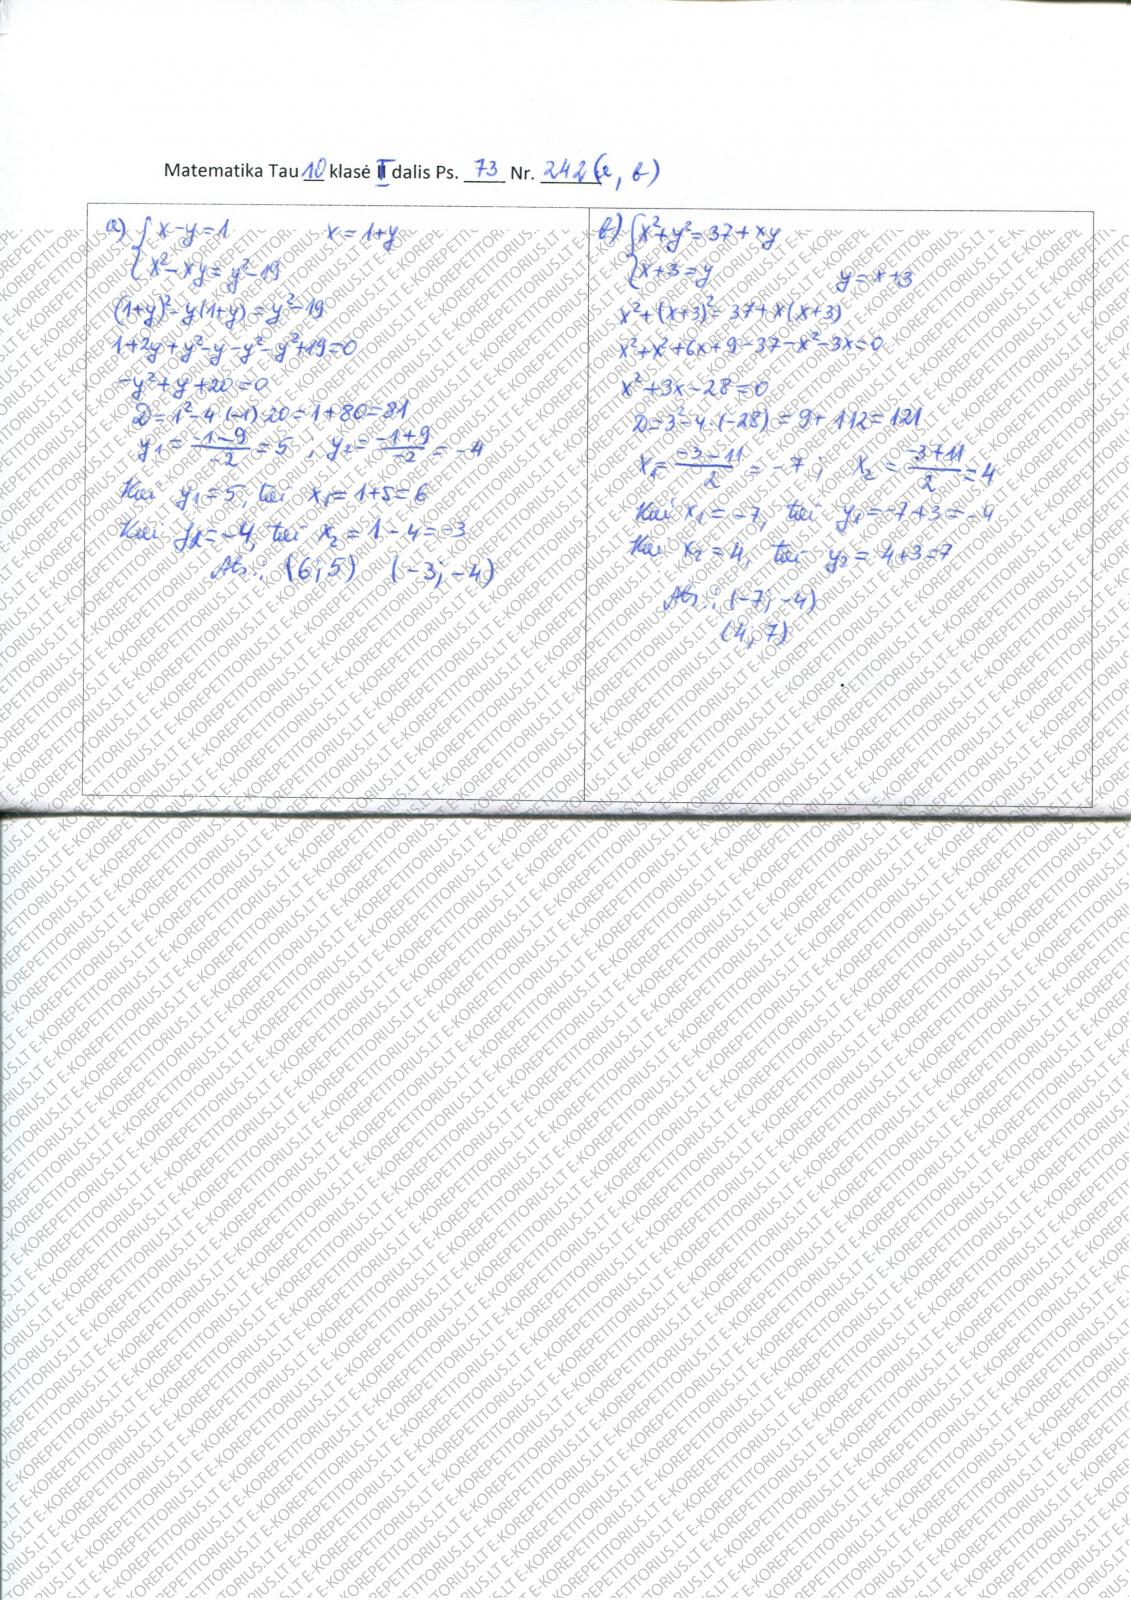 Matematika Tau 10 klasė II dalis Ps. 73 Nr. 242(a, b)
a) { x-y=1 x=1+y
x²-xy=y²-19
(1+y)²-y(1+y)=y²-19
1+2y+y²-y-y²-y²+19=0
-y²+y+20=0
D=1²-4·(-1)·20=1+80=81
y₁=(-1-9)/-2=5; y₂=(-1+9)/-2=-4
Kai y₁=5, tai x₁=1+5=6
Kai y₂=-4, tai x₂=1-4=-3
Ats.: (6;5) (-3;-4)
b) { x²+y²=37+xy
x+3=y y=x+3
x²+(x+3)²=37+x(x+3)
x²+x²+6x+9-37-x²-3x=0
x²+3x-28=0
D=3²-4·(-28)=9+112=121
x₁=(-3-11)/2=-7; x₂=(-3+11)/2=4
Kai x₁=-7, tai y₁=-7+3=-4
Kai x₂=4, tai y₂=4+3=7
Ats.: (-7;-4)
(4;7)
E-KOREPETITORIUS.LT